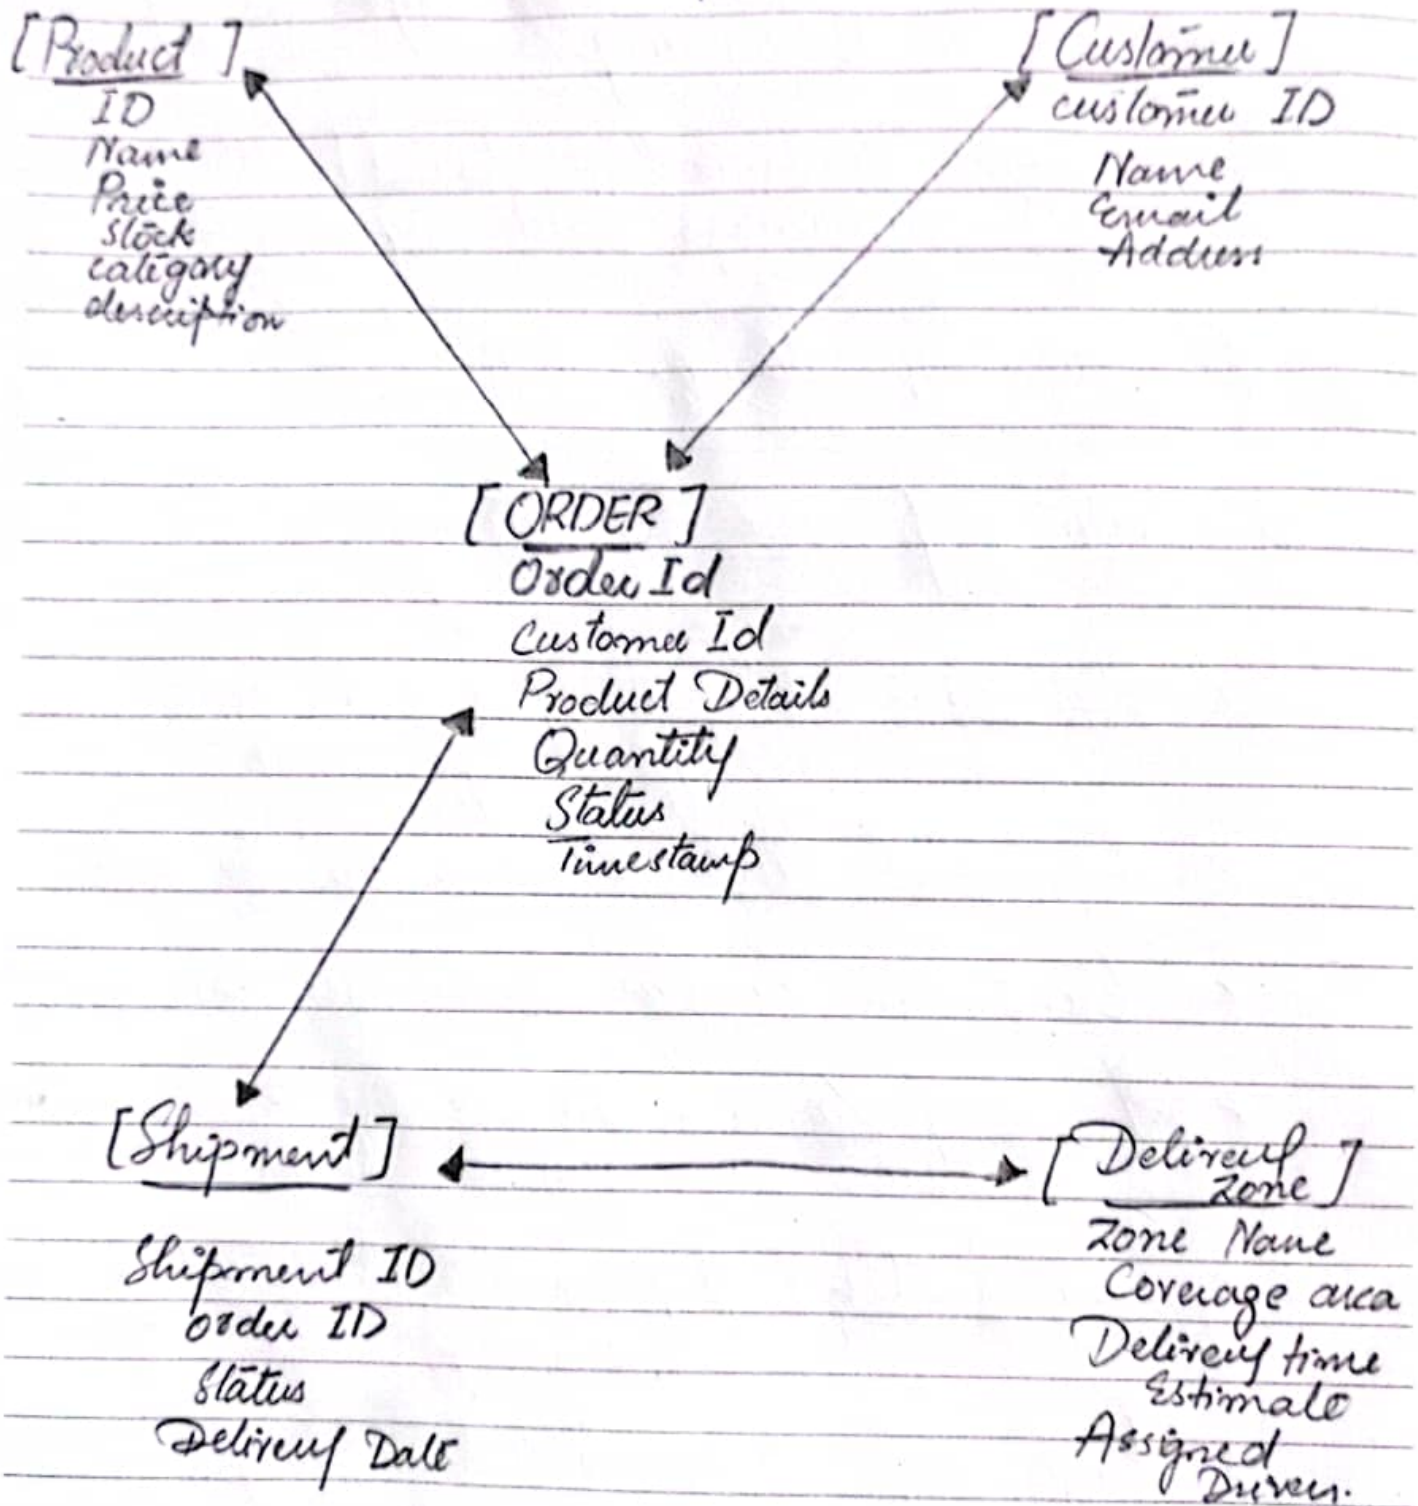 [Product]
ID
Name
Price
Stock
category
description
[Customer]
customer ID
Name
Email
Address
[ORDER]
Order Id
Customer Id
Product Details
Quantity
Status
Timestamp
[Shipment]
Shipment ID
order ID
Status
Delivery Date
[Delivery
Zone]
Zone Name
Coverage area
Delivery time
Estimate
Assigned
Drivers.